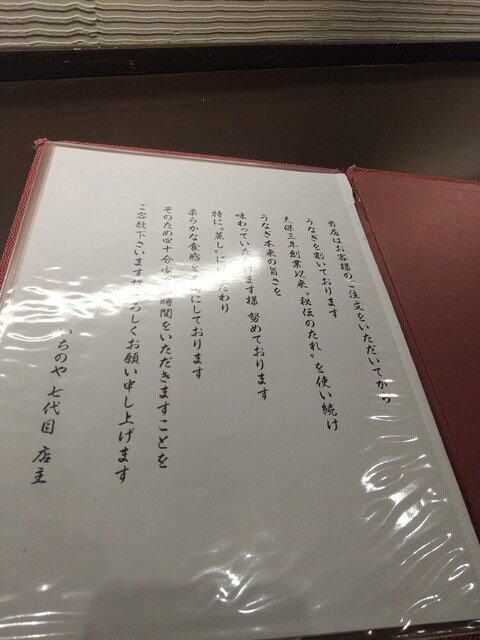 当店はお客様のご注文をいただいてから
うなぎを割いております
天保三年創業以来〝秘伝のたれ〟を使い続け
うなぎ本来の旨さを
味わっていただけます様 努めております
特に〝蒸し〟にこだわり
柔らかな食感を にしております
そのため四十分 時間をいただきますことを
ご容赦下さいます よろしくお願い申し上げます
いちのや 七代目 店主